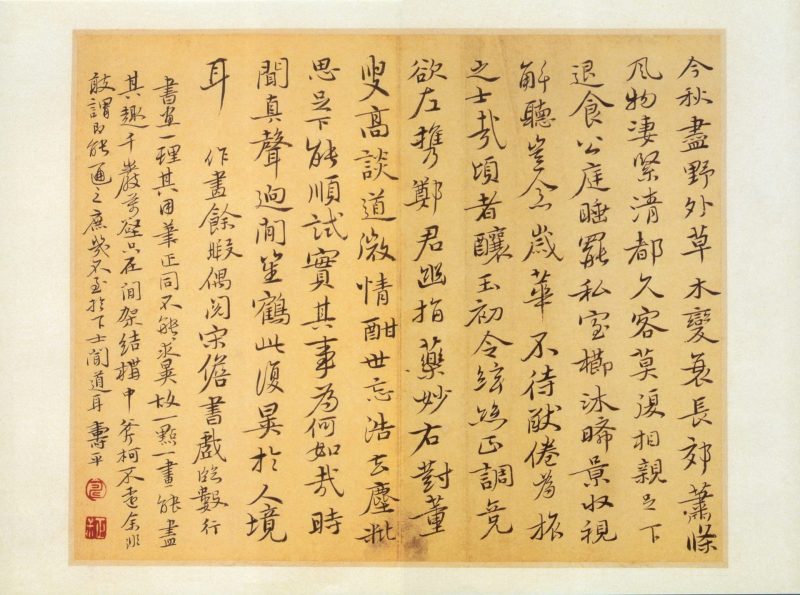 今秋盡野外草木變衰長郊蕭條
風物淒緊清都久客莫復相親足下
退食公庭睡罷私室櫛沐晞景收視
解聽豈念歲華不待猒倦為旅
之士哉頃者釀玉初令絃正調竟
欲左攜鄭君幽指藥妙右對董
叟高談道微情酣世忘浩去塵粃
思足下能順試實其事為何如哉時
聞真聲迥聞笙鶴此復異於人境
耳 作畫餘暇偶閱宋儋書戲臨數行
書畫一理其用筆正同不能求異故一點一畫能盡
其趣千巖萬壑只在間架結構中 斧柯不遠余非
敢謂即能通之庶幾不至於下士聞道耳 壽平